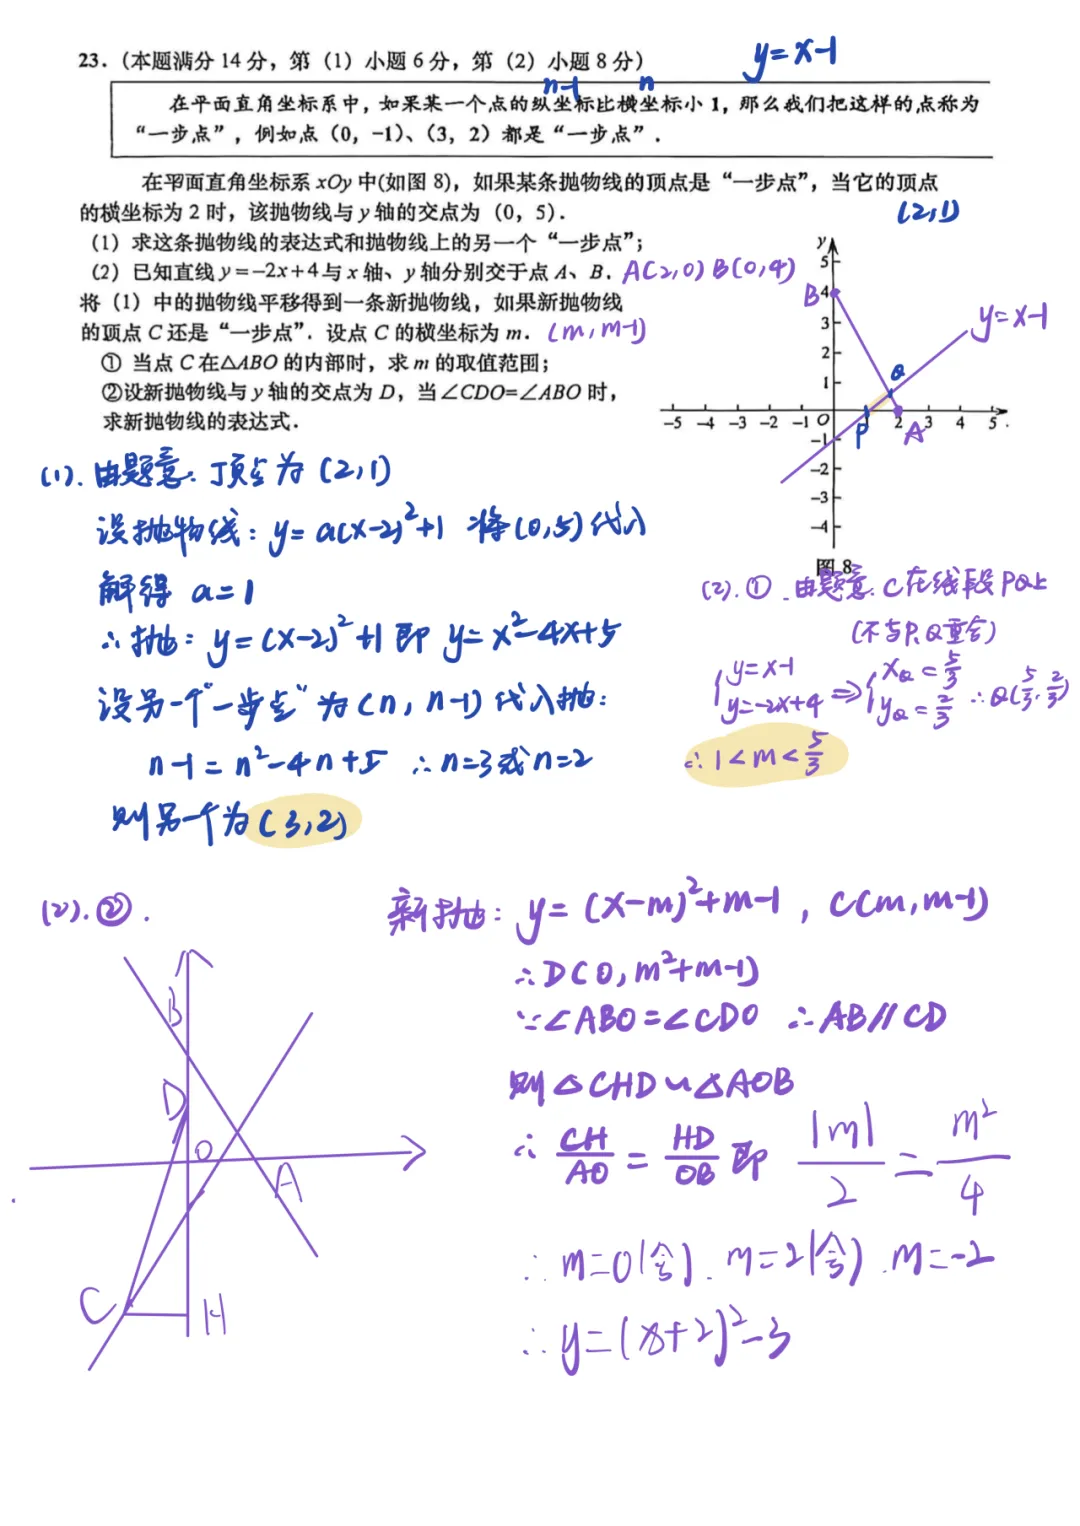 23.（本题满分14分，第（1）小题6分，第（2）小题8分）
y=x-1
n-1 n
在平面直角坐标系中，如果某一个点的纵坐标比横坐标小1，那么我们把这样的点称为
“一步点”，例如点（0，-1）、（3，2）都是“一步点”.
在平面直角坐标系xOy中(如图8)，如果某条抛物线的顶点是“一步点”，当它的顶点
的横坐标为2时，该抛物线与y轴的交点为（0，5）.
(2,1)
（1）求这条抛物线的表达式和抛物线上的另一个“一步点”；
（2）已知直线y=-2x+4与x轴、y轴分别交于点A、B. A(2,0) B(0,4)
将（1）中的抛物线平移得到一条新抛物线，如果新抛物线
的顶点C还是“一步点”. 设点C的横坐标为m. (m,m-1)
① 当点C在△ABO的内部时，求m的取值范围；
②设新抛物线与y轴的交点为D，当∠CDO=∠ABO时，
求新抛物线的表达式.
y
5
B 4
3
2
1
y=x-1
Q
-5 -4 -3 -2 -1 O P 1 2 A 3 4 5 .
-1
-2
-3
-4
图8
(1). 由题意: 顶点为(2,1)
设抛物线: y=a(x-2)²+1 将(0,5)代入
解得 a=1
∴抛: y=(x-2)²+1 即 y=x²-4x+5
设另一个“一步点”为(n, n-1)代入抛:
n-1=n²-4n+5 ∴n=3或n=2
则另一个为(3,2)
(2). ① 由题意. C在线段PQ上
(不与P,Q重合)
{y=x-1 y=-2x+4 ⇒ {xQ=5/3 yQ=2/3 ∴Q(5/3, 2/3)
∴ 1<m<5/3
(2). ②.
新抛: y=(x-m)²+m-1, C(m,m-1)
∴D(0,m²+m-1)
∵∠ABO=∠CDO ∴AB∥CD
则△CHD∽△AOB
∴ CH/AO = HD/OB 即 |m|/2 = m²/4
∴ m=0(舍). m=2(舍). m=-2
∴ y=(x+2)²-3
B
D
O
A
C
H